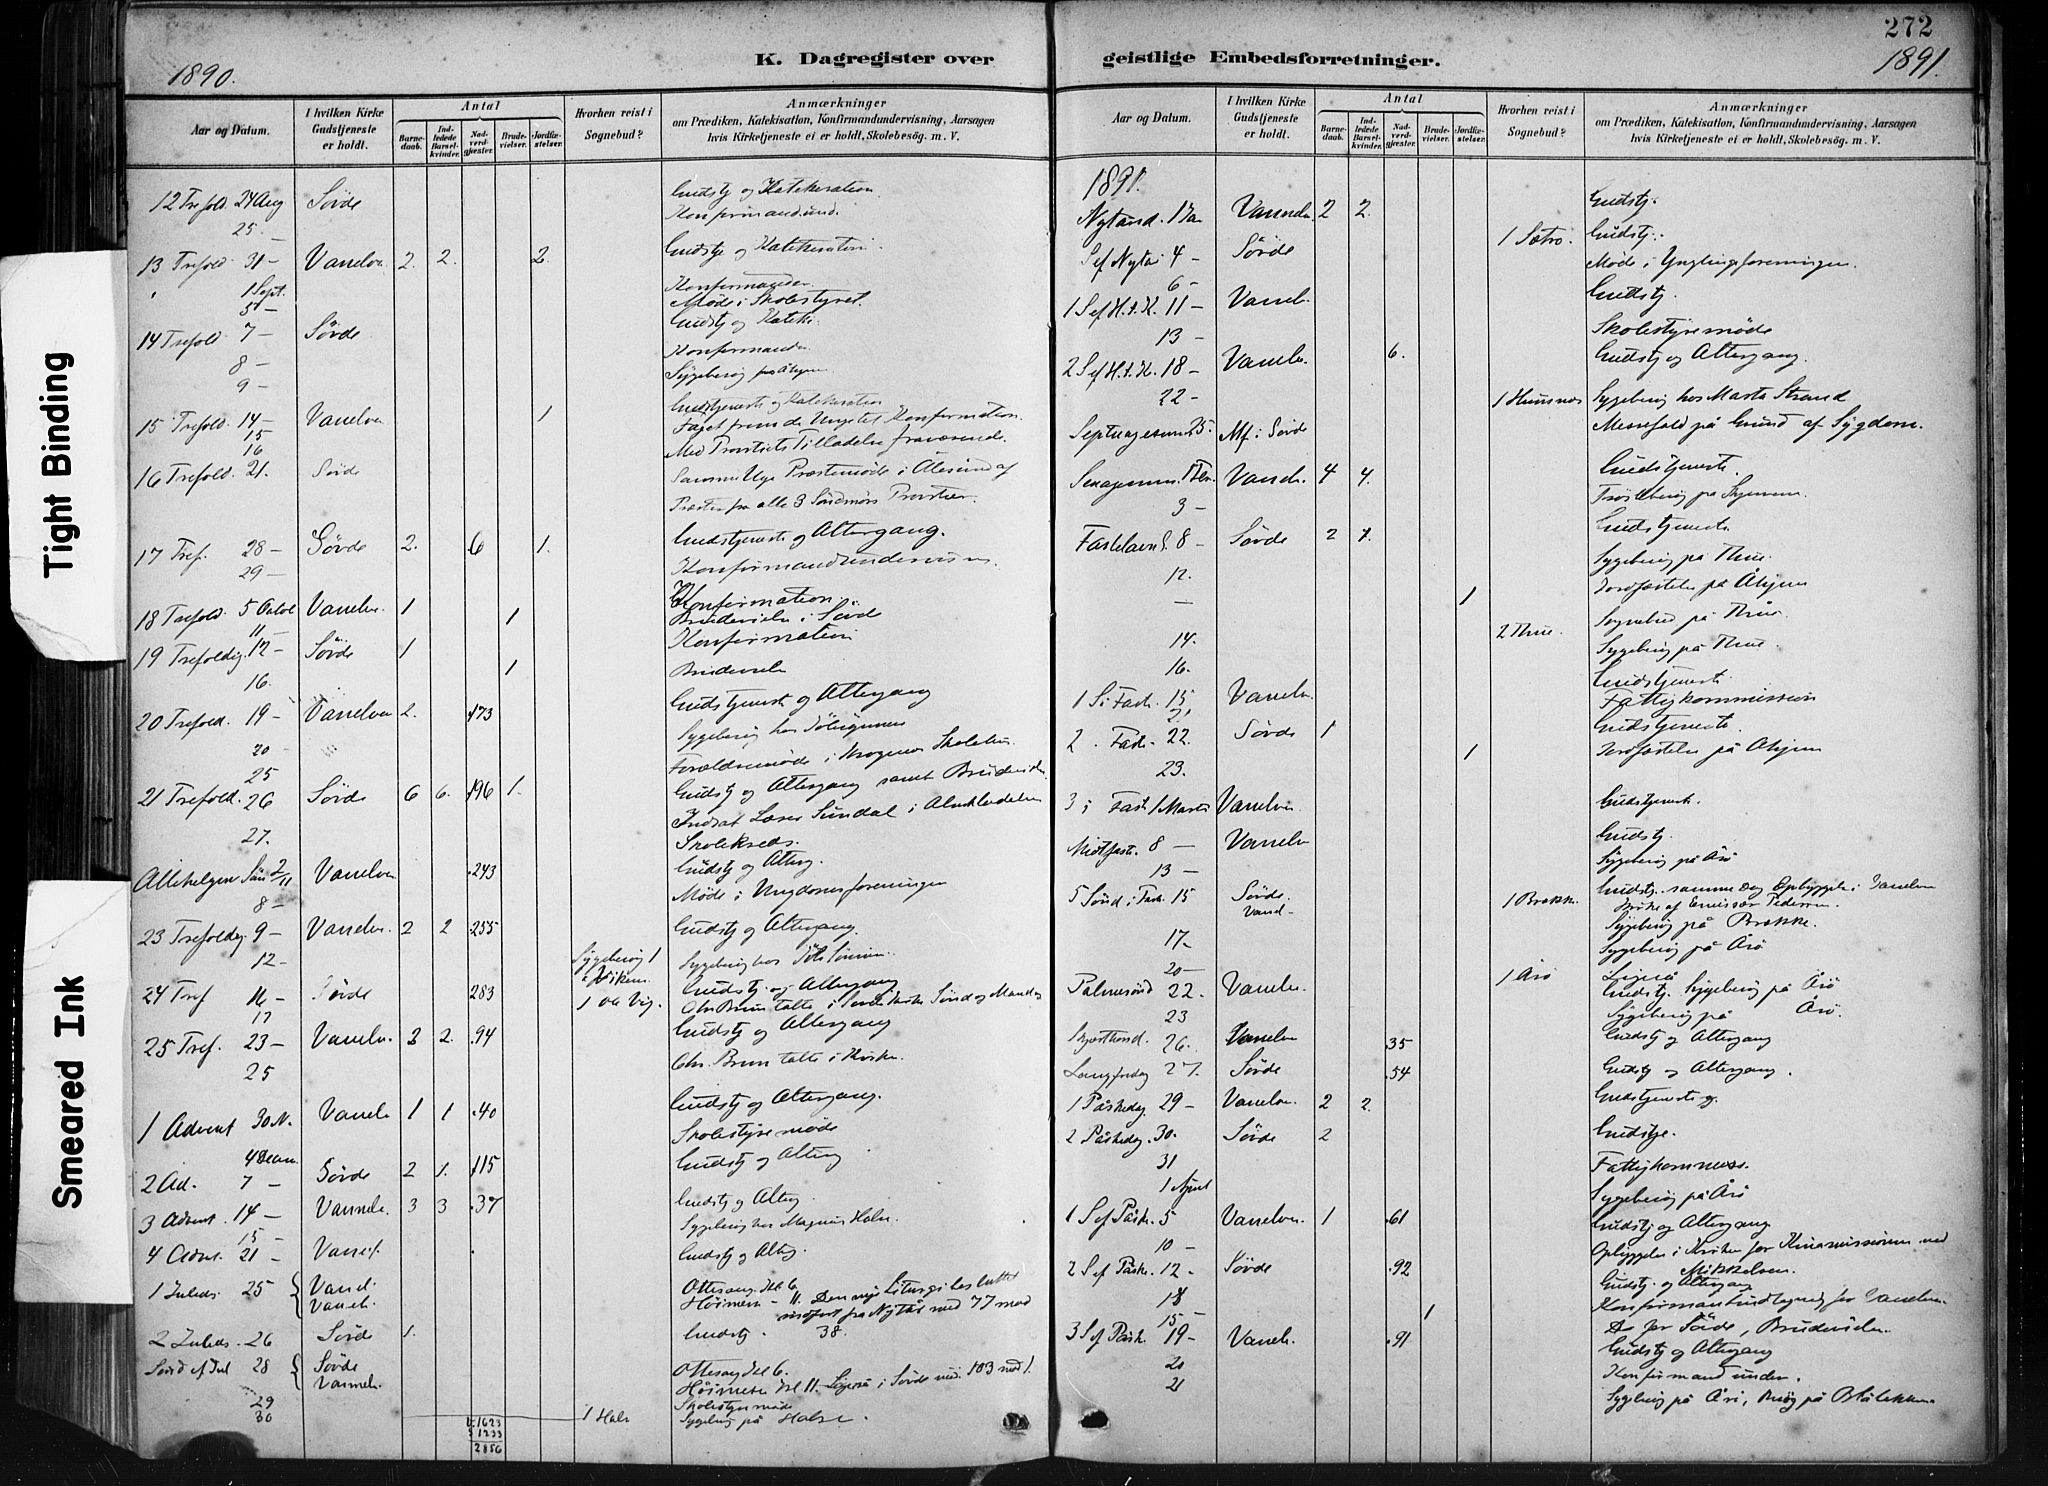 272
1890.
K. Dagregister over
geistlige Embedsforretninger.
1891.
Aar og Datum.
I hvilken Kirke Gudstjeneste er holdt.
Antal
Barnedaab.
Indledede Barselkvinder.
Nadverdgjæster.
Brudevielser.
Jordfæstelser.
Hvorhen reist i Sognebud?
Anmærkninger
om Prædiken, Katekisation, Konfirmandundervisning, Aarsagen
hvis Kirketjeneste ei er holdt, Skolebesög. m. V.
12 Trefold. 24 Aug Sövde Gudstj og Katekisation
25. Konfirmandund.
13 Trefold. 31 – Vanelv. 2. 2. 2. Gudstje og Katekisation.
1 Sept. Konfirmander
5 – Möde i Skolestyret.
14 Trefold. 7 – Sövde Gudstj og Kateki.
8 – Konfirmander
9 – Sygebesög
15 Trefold. 14 – Vanelven 1 Gudstjeneste og Katekisation
15
16 Med Provstiets Tilladelse fraværende.
16 Trefold. 21. Sövde Samme Uge Præstemöde i Ålesund af
Præster fra alle 3 Söndmörs Provstier.
17 Tref. 28 – Sövde 2. 6 1. Gudstjeneste og Altergang.
29 – Konfirmandundervisn.
18 Trefold. 5 Octob Vanelv. 1 Konfirmation
11 – 1 Brudevielse i Sövde
19 Trefoldig. 12 – Sövde 1 Konfirmation
16. 1 Brudevielse
20 Trefold. 19 – Vanelven 2. 173 Gudstjeneste og Altergang
20 – Sygebesög hos
25 Forældremöde i Krogenes Skolehus.
21 Trefold. 26 Sövde 6 6. 196 1. Gudstj og Altergang samt Brudevielse
Indsat Lærer Sundal i Almklovdalen
27. Skolekreds.
Allehelgen Sön 2/11 Vanelven 243 Gudstj og Alterg.
8 – Möde i Ungdomsforeningen
23 Trefoldig 9 – Vanelv. 2 2 255 Gudstj og Altergang.
12 – Sygebesög 1 Sygebesög hos
24 Tref 16 – Sövde 283 Gudstj. og Altergang
17 Chr Brun talte i Sövde Kirke Sönd og Mandag
25 Tref. 23 – Vanelv. 2 2. 94 Gudstj og Altergang
25 Chr. Brun talte i Kirken.
1 Advent 30 N. Vanelv 1 1 40 Gudstj og Altergang.
4 Decem. Skolestyremöde
2 Ad. 7 – Sövde 2 1. 115 Gudstj og Alterg
3 Advent. 14 – Vannelv. 3 3 37 Gudstj og Alterg.
15 – Sygebesög hos Magnus Halse.
4 Advt. 21 – Vanelv. Gudstj og Alterg
1 Juleds. 25 Vanel. Ottesang Kl 6.
Vanelv. Höimesse – 11. Den nye Liturgi besluttet
indfört fra Nytår med 77 mod
2 Juleds. 26 Sövde 1. Gudstj. 38.
Sönd ef Jul 28 Sövde Ottesang Kl 6.
Vannelv. Höimesse Kl 11. i Sövde med 103 mod 1.
29 Skolestyremöde
30 1 Halse Sygebesög på Halse.
1623
1233
2856
Aar og Datum.
I hvilken Kirke Gudstjeneste er holdt.
Antal
Barnedaab.
Indledede Barselkvinder.
Nadverdgjæster.
Brudevielser.
Jordfæstelser.
Hvorhen reist i Sognebud?
Anmærkninger
om Prædiken, Katekisation, Konfirmandundervisning, Aarsagen
hvis Kirketjeneste ei er holdt, Skolebesög. m. V.
1891.
Nytårsd. 1 Jan Vannelv. 2 2. Gudstj.
Sef Nytår 4 – Sövde 1 Sætre. Gudstj.
6 – Möde i Ynglingeforeningen.
1 S ef H. t. K. 11 – Vanelv. Gudstj.
13 – Skolestyremöde
2 S ef H. t. K. 18 – Vanelv. 6. Gudstj og Altergang.
22 – 1 Humsnes Sygebesög hos Marta Strand
Septuagesima 25. Mf. i Sövde Messefald på Grund af Sygdom.
Sexagesima. 1 Febr. Vanelv. 4 4. Gudstjeneste.
3 –
Fastelavns. 8 – Sövde 2 1. Gudstjeneste
12. Sygebesög på Thue.
– 1 Jordfæstelse på Åhjem
2 Thue. Sognebud på Thue
14. Sygebesög på Thue.
16.
1 Si Fast. 15 Vanelv. Gudstjeneste
21 Fattigkommission
2. Fast. 22. Sövde 1 Gudstjeneste
23. 1 Jordfæstelse på Ahjem
3 i Fast 1 Marts Vanelven Gudstjenest.
Midtfast. 8 – Vanelv Gudstj.
13 – Sygebesög på Årö
5 Sönd i Fast. 15 Sövde. 1 Brekke. Gudstj. samme Dag Opbyggelse i Vanelven
Vanel – Kirke af Emissær Pedersen
Sygebesög på Brekke.
17 – Sygebesög på Årö
20 – 1 Årö
Palmesönd 22. Vanelv. Gudstj. Sygebesög på Årö
23 Sygebesög på Årö.
Skjærthorsd. 26. Vanelv 35 Gudstj og Altergang
Langfredag 27. Sövde 54 Gudstj og Altergang.
1 Påskedag. 29 – Vanelv. 2 2. Gudstjeneste
2 Påskedag. 30. Sövde 2 Gudstje.
31 Fattigkommiss.
1 April Sygebesög på Årö
1 S ef Påsk. 5 Vanelven 1 61 Gudstj og Altergang
10 – Opbyggelse i Kirken for Kinamissionen ved
Mikkelsen.
2 S ef Påske. 12 – Sövde 92 Gudstj. og Altergang
13 Konfirmantindtegning for Vanelven
15 – 1 Do for Sövde, Brudevielse
3 S ef Påsk. 19 – Vanelv. 91 Gudstj og Altergang
20 Konfirmandunder.
21 Sygebesög på
Tight Binding
Smeared Ink